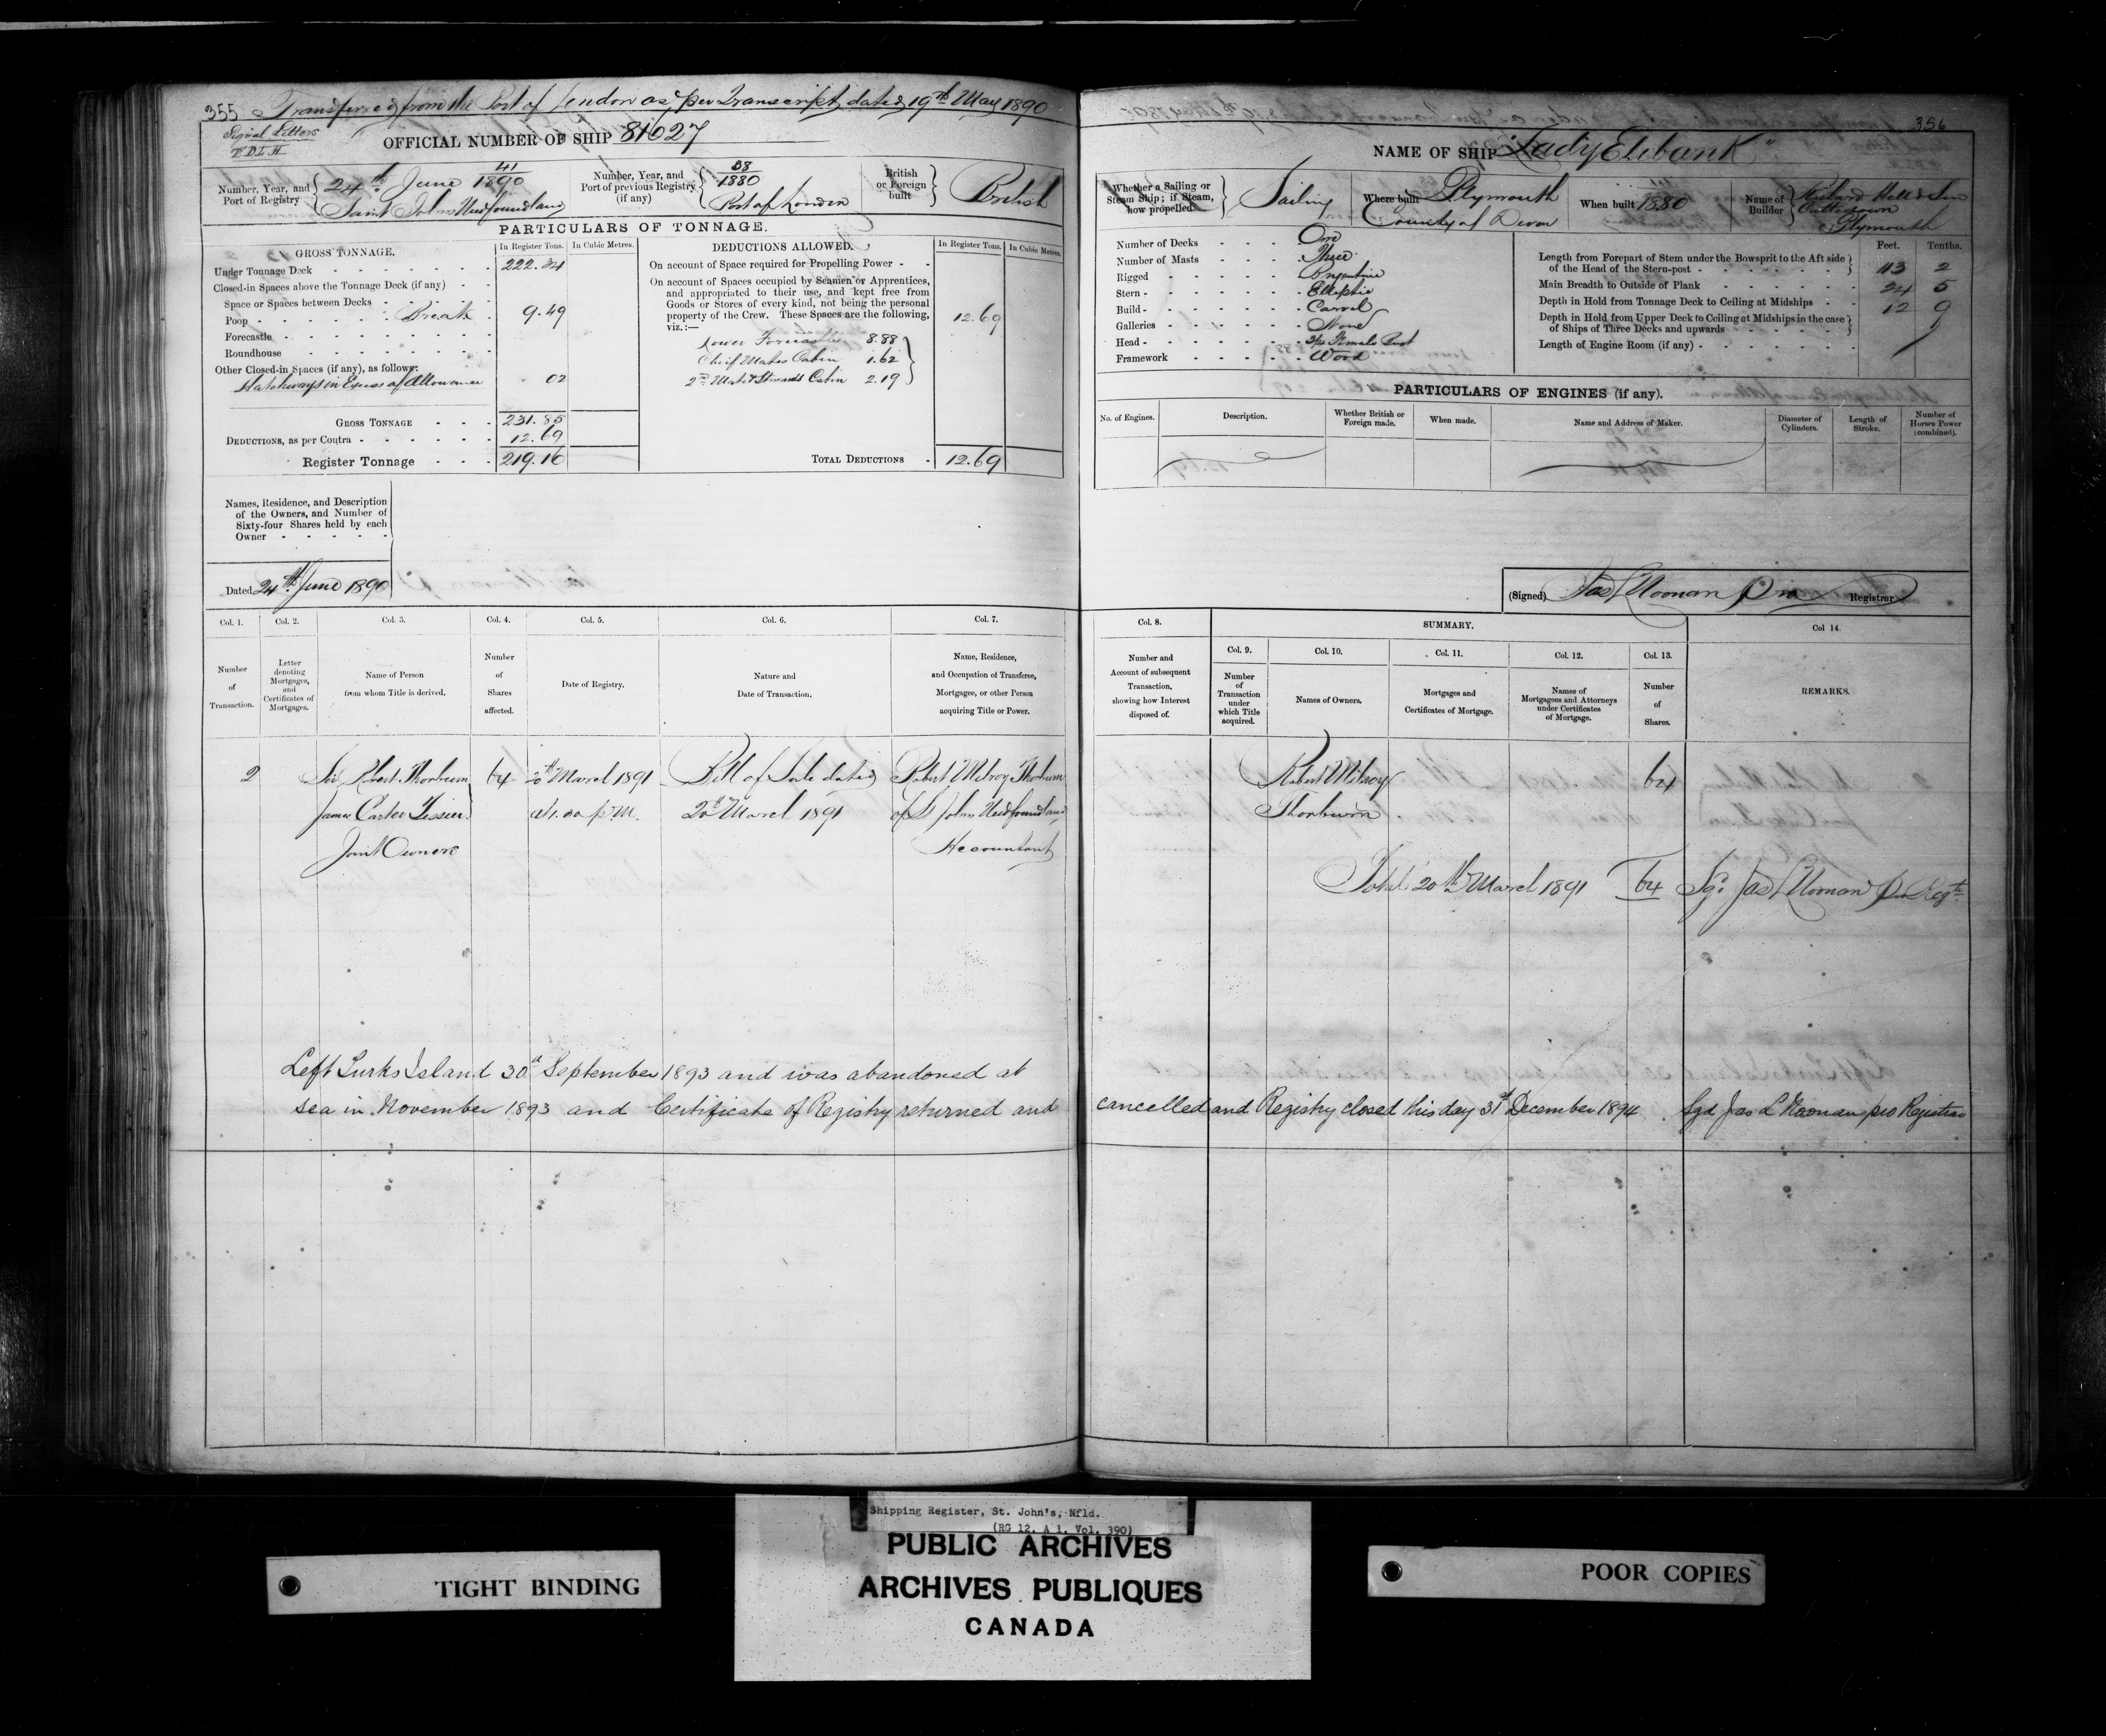 355 Transferred from the Port of London as per Transcript dated 19th May 1890
Signal Letters
OFFICIAL NUMBER OF SHIP 81627
Number, Year, and Port of Registry 41 24th June 1890 Saint Johns Newfoundland
Number, Year, and Port of previous Registry (if any) 38 1880 Port of London
British or Foreign built British
PARTICULARS OF TONNAGE.
GROSS TONNAGE. In Register Tons. In Cubic Metres.
Under Tonnage Deck 222.34
Closed-in Spaces above the Tonnage Deck (if any)
Space or Spaces between Decks
Poop Break 9.49
Forecastle
Roundhouse
Other Closed-in Spaces (if any), as follows:
Hatchways in Excess of Allowance 02
GROSS TONNAGE 231.85
DEDUCTIONS, as per Contra 12.69
Register Tonnage 219.16
DEDUCTIONS ALLOWED. In Register Tons. In Cubic Metres.
On account of Space required for Propelling Power
On account of Spaces occupied by Seamen or Apprentices,
and appropriated to their use, and kept free from
Goods or Stores of every kind, not being the personal
property of the Crew. These Spaces are the following,
viz.:— 12.69
Lower Forecastle 8.88
Chief Mates Cabin 1.62
2nd Mate & Stewards Cabin 2.19
TOTAL DEDUCTIONS 12.69
Names, Residence, and Description
of the Owners, and Number of
Sixty-four Shares held by each
Owner
Dated 24th June 1890
Col. 1. Col. 2. Col. 3. Col. 4. Col. 5. Col. 6. Col. 7.
Number of Transaction.
Letter denoting Mortgages, and Certificates of Mortgages.
Name of Person from whom Title is derived.
Number of Shares affected.
Date of Registry.
Nature and Date of Transaction.
Name, Residence, and Occupation of Transferee, Mortgagee, or other Person acquiring Title or Power.
2 Sir Robert Thorburn 64 20th March 1891 Bill of Sale dated Robert Milroy Thorburn
James Carter Tessier at 1.30 p.M. 20th March 1891 of St Johns Newfoundland
Joint Owners Accountant
Left Turks Island 30th September 1893 and was abandoned at
sea in November 1893 and Certificate of Registry returned and
356
NAME OF SHIP "Lady Elibank"
Whether a Sailing or Steam Ship; if Steam, how propelled Sailing
Where built Plymouth County of Devon
When built 1880
Name of Builder Richard Hill & Son Cattedown Plymouth
Number of Decks One
Number of Masts Three
Rigged Brigantine
Stern Elliptic
Build Carvel
Galleries None
Head 3/4 Female Bust
Framework Wood
Feet. Tenths.
Length from Forepart of Stem under the Bowsprit to the Aft side
of the Head of the Stern-post 113 2
Main Breadth to Outside of Plank 24 5
Depth in Hold from Tonnage Deck to Ceiling at Midships 12 9
Depth in Hold from Upper Deck to Ceiling at Midships in the case
of Ships of Three Decks and upwards
Length of Engine Room (if any)
PARTICULARS OF ENGINES (if any).
No. of Engines. Description. Whether British or Foreign made. When made. Name and Address of Maker. Diameter of Cylinders. Length of Stroke. Number of Horses Power (combined).
(Signed) Jas L Noonan Pro Registrar
Col. 8. SUMMARY. Col 14.
Col. 9. Col. 10. Col. 11. Col. 12. Col. 13.
Number and Account of subsequent Transaction, showing how Interest disposed of.
Number of Transaction under which Title acquired.
Names of Owners.
Mortgages and Certificates of Mortgage.
Names of Mortgagees and Attorneys under Certificates of Mortgage.
Number of Shares.
REMARKS.
Robert Milroy 64
Thorburn
Total 20th March 1891 64 Sgd Jas L Noonan Pro Regtr
cancelled and Registry closed this day 31st December 1894. Sgd Jas L Noonan pro Registrar
Shipping Register, St. John's, Nfld.
(RG 12, A 1, Vol. 390)
PUBLIC ARCHIVES
ARCHIVES PUBLIQUES
CANADA
TIGHT BINDING
POOR COPIES